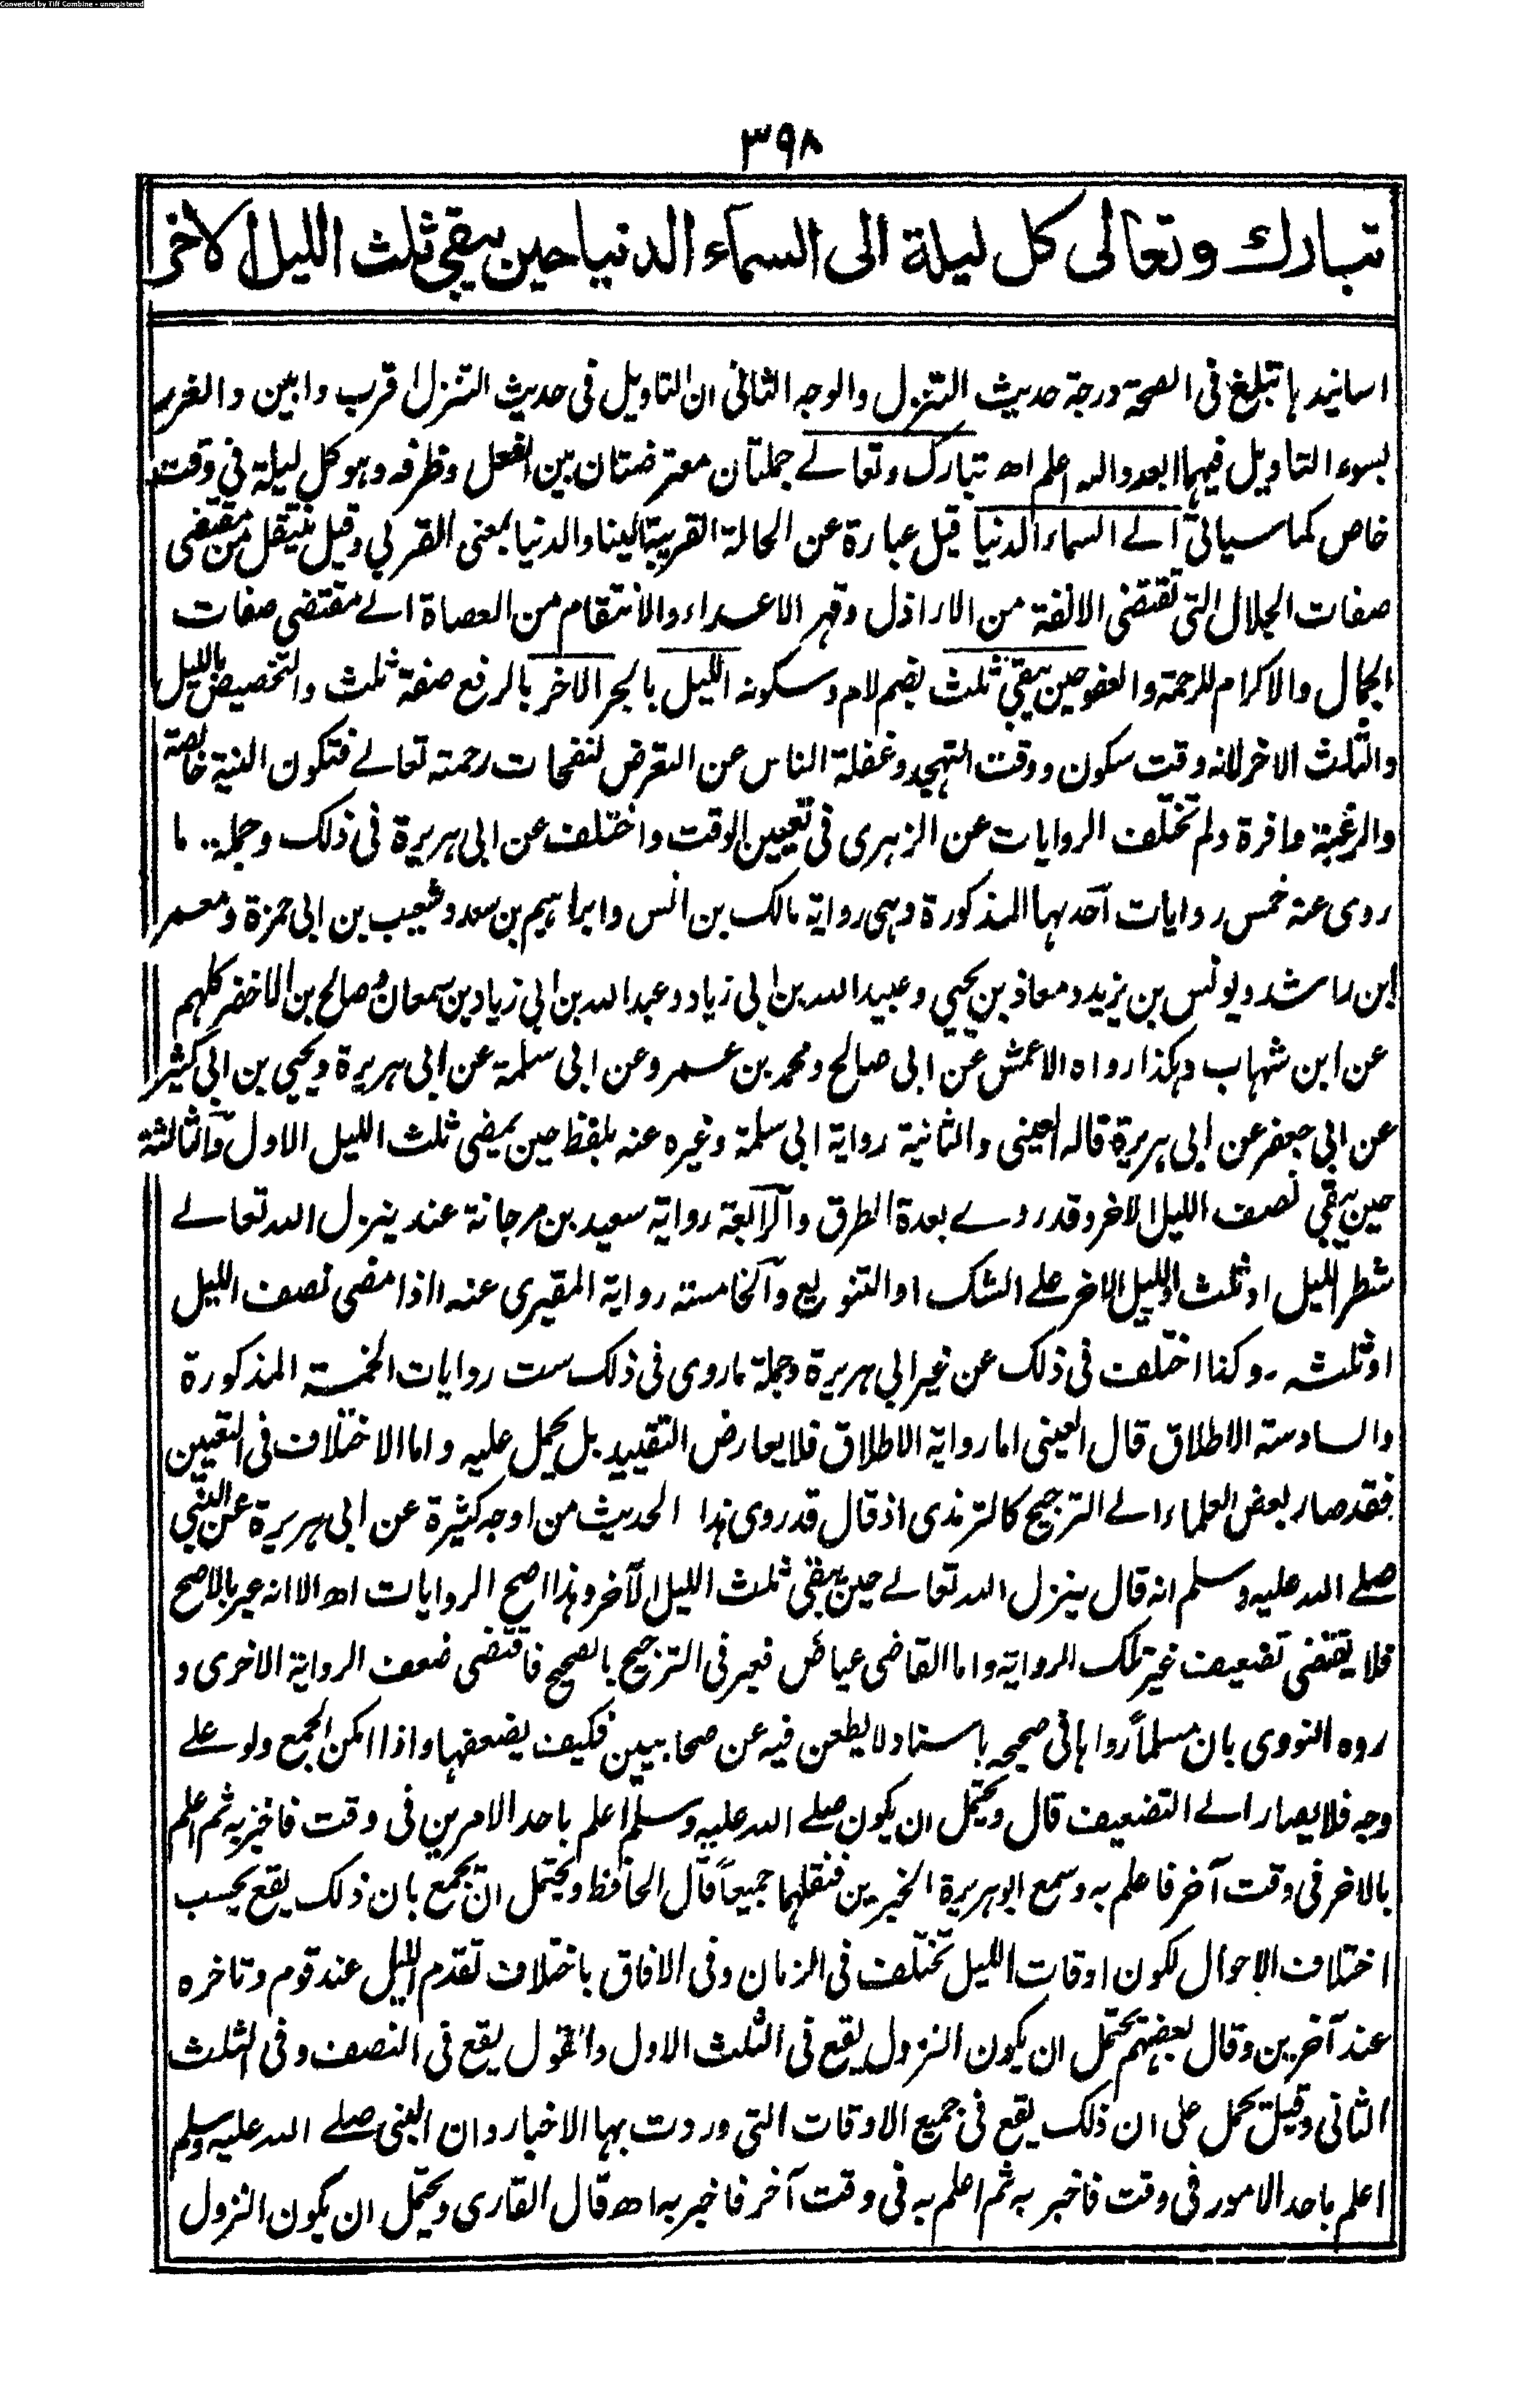 Converted by Tiff Combine - unregistered
٣٩٨
تبارك وتعالى كل ليلة الى السماء الدنيا حين يبقى ثلث الليل الاخر
اسانيدها تبلغ فى الصحة درجة حديث التنزل والوجه الثانى ان التاويل فى حديث التنزل اقرب وابين والغرر
بسوء التاويل فيهما ابعد والله اعلم اه تبارك وتعالے جملتان معترضتان بين الفعل وظرفه وهو كل ليلة فى وقت
خاص كما سياتى آلے السماء الدنيا قيل عبارة عن الحالة القريبة الينا والدنيا بمعنى القربى وقيل ينتقل من مقتضى
صفات الجلال التى تقتضى الانفة من الاراذل وقهر الاعداء والانتقام من العصاة الے مقتضى صفات
الجمال والاكرام للرحمة والعفو حين يبقى ثلث بضم لام وسكونه الليل بالجر الآخر بالرفع صفة ثلث والتخصيص بالليل
والثلث الاخر لانه وقت سكون ووقت التهجد وغفلة الناس عن التعرض لنفحات رحمته تعالے فتكون النية خالصة
والرغبة وافرة ولم تختلف الروايات عن الزهرى فى تعيين الوقت واختلف عن ابى هريرة فى ذلك وجملة ما
روى عنه خمس روايات آحدها المذكورة وهى رواية مالك بن انس وابراهيم بن سعد وشعيب بن ابى حمزة ومعمر
ابن راشد ويونس بن يزيد ومعاذ بن يحيى وعبيد الله بن ابى زياد وعبد الله بن ابى زياد بن سمعان وصالح بن الاخضر كلهم
عن ابن شهاب وهكذا رواه الاعمش عن ابى صالح ومحمد بن عمرو عن ابى سلمة عن ابى هريرة ويحيى بن ابى كثير
عن ابى جعفر عن ابى هريرة قاله العينى والثانية رواية ابى سلمة وغيره عنه بلفظ حين يمضى ثلث الليل الاول وآلثالثة
حين يبقى نصف الليل الآخر وقد روے بعدة الطرق وآلرابعة رواية سعيد بن مرجانة عنه ينزل الله تعالے
شطر الليل او ثلث الليل الآخر على الشك او التنويع وآلخامسة رواية المقبرى عنه اذا مضى نصف الليل
او ثلثه ۔ وكذا اختلف فى ذلك عن غير ابى هريرة وجملة ما روى فى ذلك ست روايات الخمسة المذكورة
والسادسة الاطلاق قال العينى اما رواية الاطلاق فلا يعارض التقييد بل يحمل عليه واما الاختلاف فى التعيين
فقد صار بعض العلماء الے الترجيح كالترمذى اذ قال قد روى هذا الحديث من اوجه كثيرة عن ابى هريرة عن النبى
صلے الله عليه وسلم انه قال ينزل الله تعالے حين يبقى ثلث الليل الآخر وهذا اصح الروايات اه الا انه عبر بالاصح
فلا يقتضى تضعيف غير تلك الرواية واما القاضى عياض فعبر فى الترجيح بالصحيح فاقتضى ضعف الرواية الاخرى و
رده النووى بان مسلماً رواها فى صحيحه باسناد لا يطعن فيه عن صحابيين فكيف يضعفها واذا امكن الجمع ولو على
وجه فلا يصار الے التضعيف قال ويحتمل ان يكون صلے الله عليه وسلم اعلم باحد الامرين فى وقت فاخبر به ثم اعلم
بالاخر فى وقت آخر فاعلم به وسمع ابو هريرة الخبرين فنقلهما جميعاً قال الحافظ ويحتمل ان يجمع بان ذلك يقع بحسب
اختلاف الاحوال لكون اوقات الليل تختلف فى الزمان وفى الافاق باختلاف تقدم الليل عند قوم وتاخره
عند آخرين وقال بعضهم يحتمل ان يكون النزول يقع فى الثلث الاول والقول يقع فى النصف وفى الثلث
الثانى وقيل يحمل على ان ذلك يقع فى جميع الاوقات التى وردت بها الاخبار وان النبى صلے الله عليه وسلم
اعلم باحد الامور فى وقت فاخبر به ثم اعلم به فى وقت آخر فاخبر به اه قال القارى ويحتمل ان يكون النزول